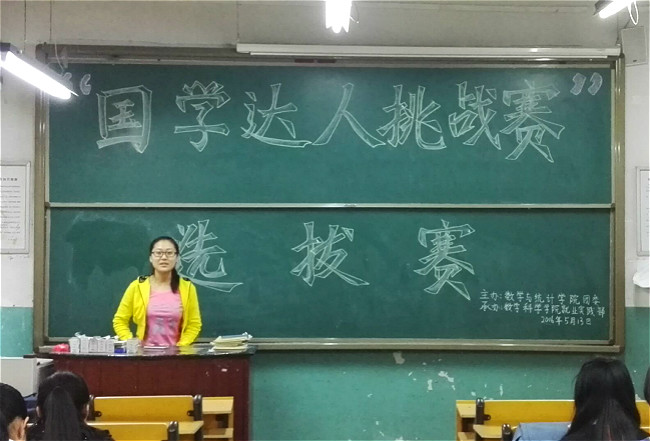 “国学达人挑战赛”
选拔赛
主办：数学与统计学院团委
承办：数学科学学院就业实践部
2016年5月13日